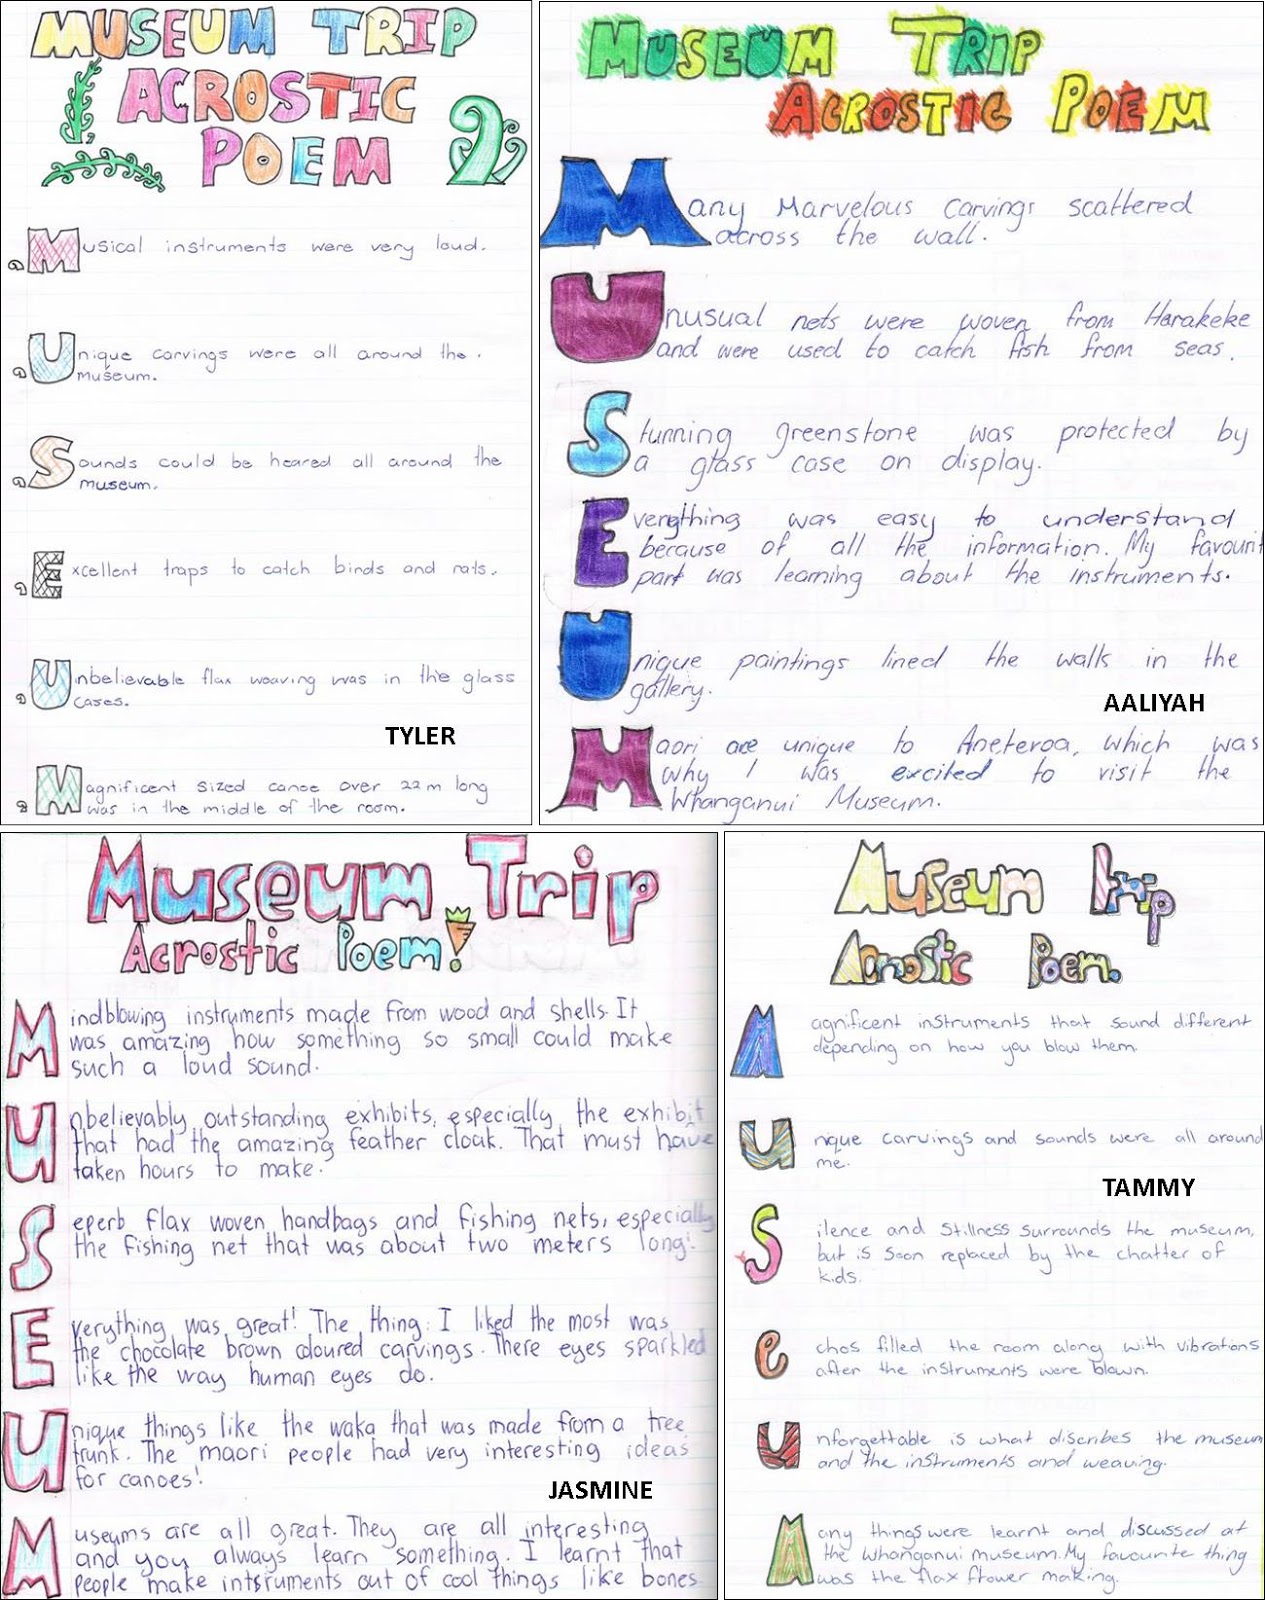 MUSEUM TRIP
ACROSTIC
POEM
Musical instruments were very loud.
Unique carvings were all around the.
museum.
Sounds could be heared all around the
museum.
Excellent traps to catch binds and rats.
Unbelievable flax weaving was in the glass
cases.
TYLER
Magnificent sized canoe over 22m long
was in the middle of the room.
MUSEUM TRIP
ACROSTIC POEM
Many Marvelous carvings scattered
across the wall.
Unusual nets were woven from Harakeke
and were used to catch fish from seas.
Stunning greenstone was protected by
a glass case on display.
Everything was easy to understand
because of all the information. My favourit
part was learning about the instruments.
Unique paintings lined the walls in the
gallery.
AALIYAH
Maori are unique to Aneteroa, which was
why I was excited to visit the
Whanganui Museum.
Museum Trip
Acrostic Poem!
Mindblowing instruments made from wood and shells. It
was amazing how something so small could make
such a loud sound.
Unbelievably outstanding exhibits, especially the exhibit
that had the amazing feather cloak. That must have
taken hours to make.
Seperb flax woven handbags and fishing nets, especially
the fishing net that was about two meters long!
Everything was great! The thing I liked the most was
the chocolate brown coloured carvings. There eyes sparkled
like the way human eyes do.
Unique things like the waka that was made from a tree
trunk. The maori people had very interesting ideas
for canoes!
JASMINE
Museums are all great. They are all interesting
and you always learn something. I learnt that
people make intsruments out of cool things like bones.
Museum Trip
Acrostic Poem.
Magnificent instruments that sound different
depending on how you blow them.
Unique carvings and sounds were all around
me.
TAMMY
Silence and stillness surrounds the museum,
but is soon replaced by the chatter of
kids.
echos filled the room along with vibrations
after the instruments were blown.
unforgettable is what discribes the museum
and the instruments and weaving.
Many things were learnt and discussed at
the Whanganui museum. My favourite thing
was the flax flower making.